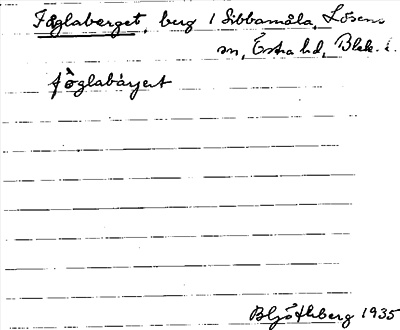 Fåglaberget, berg i Sibbamåla, Lösens
sn, Östra hd, Blek. l.
fòglabárjert
1935